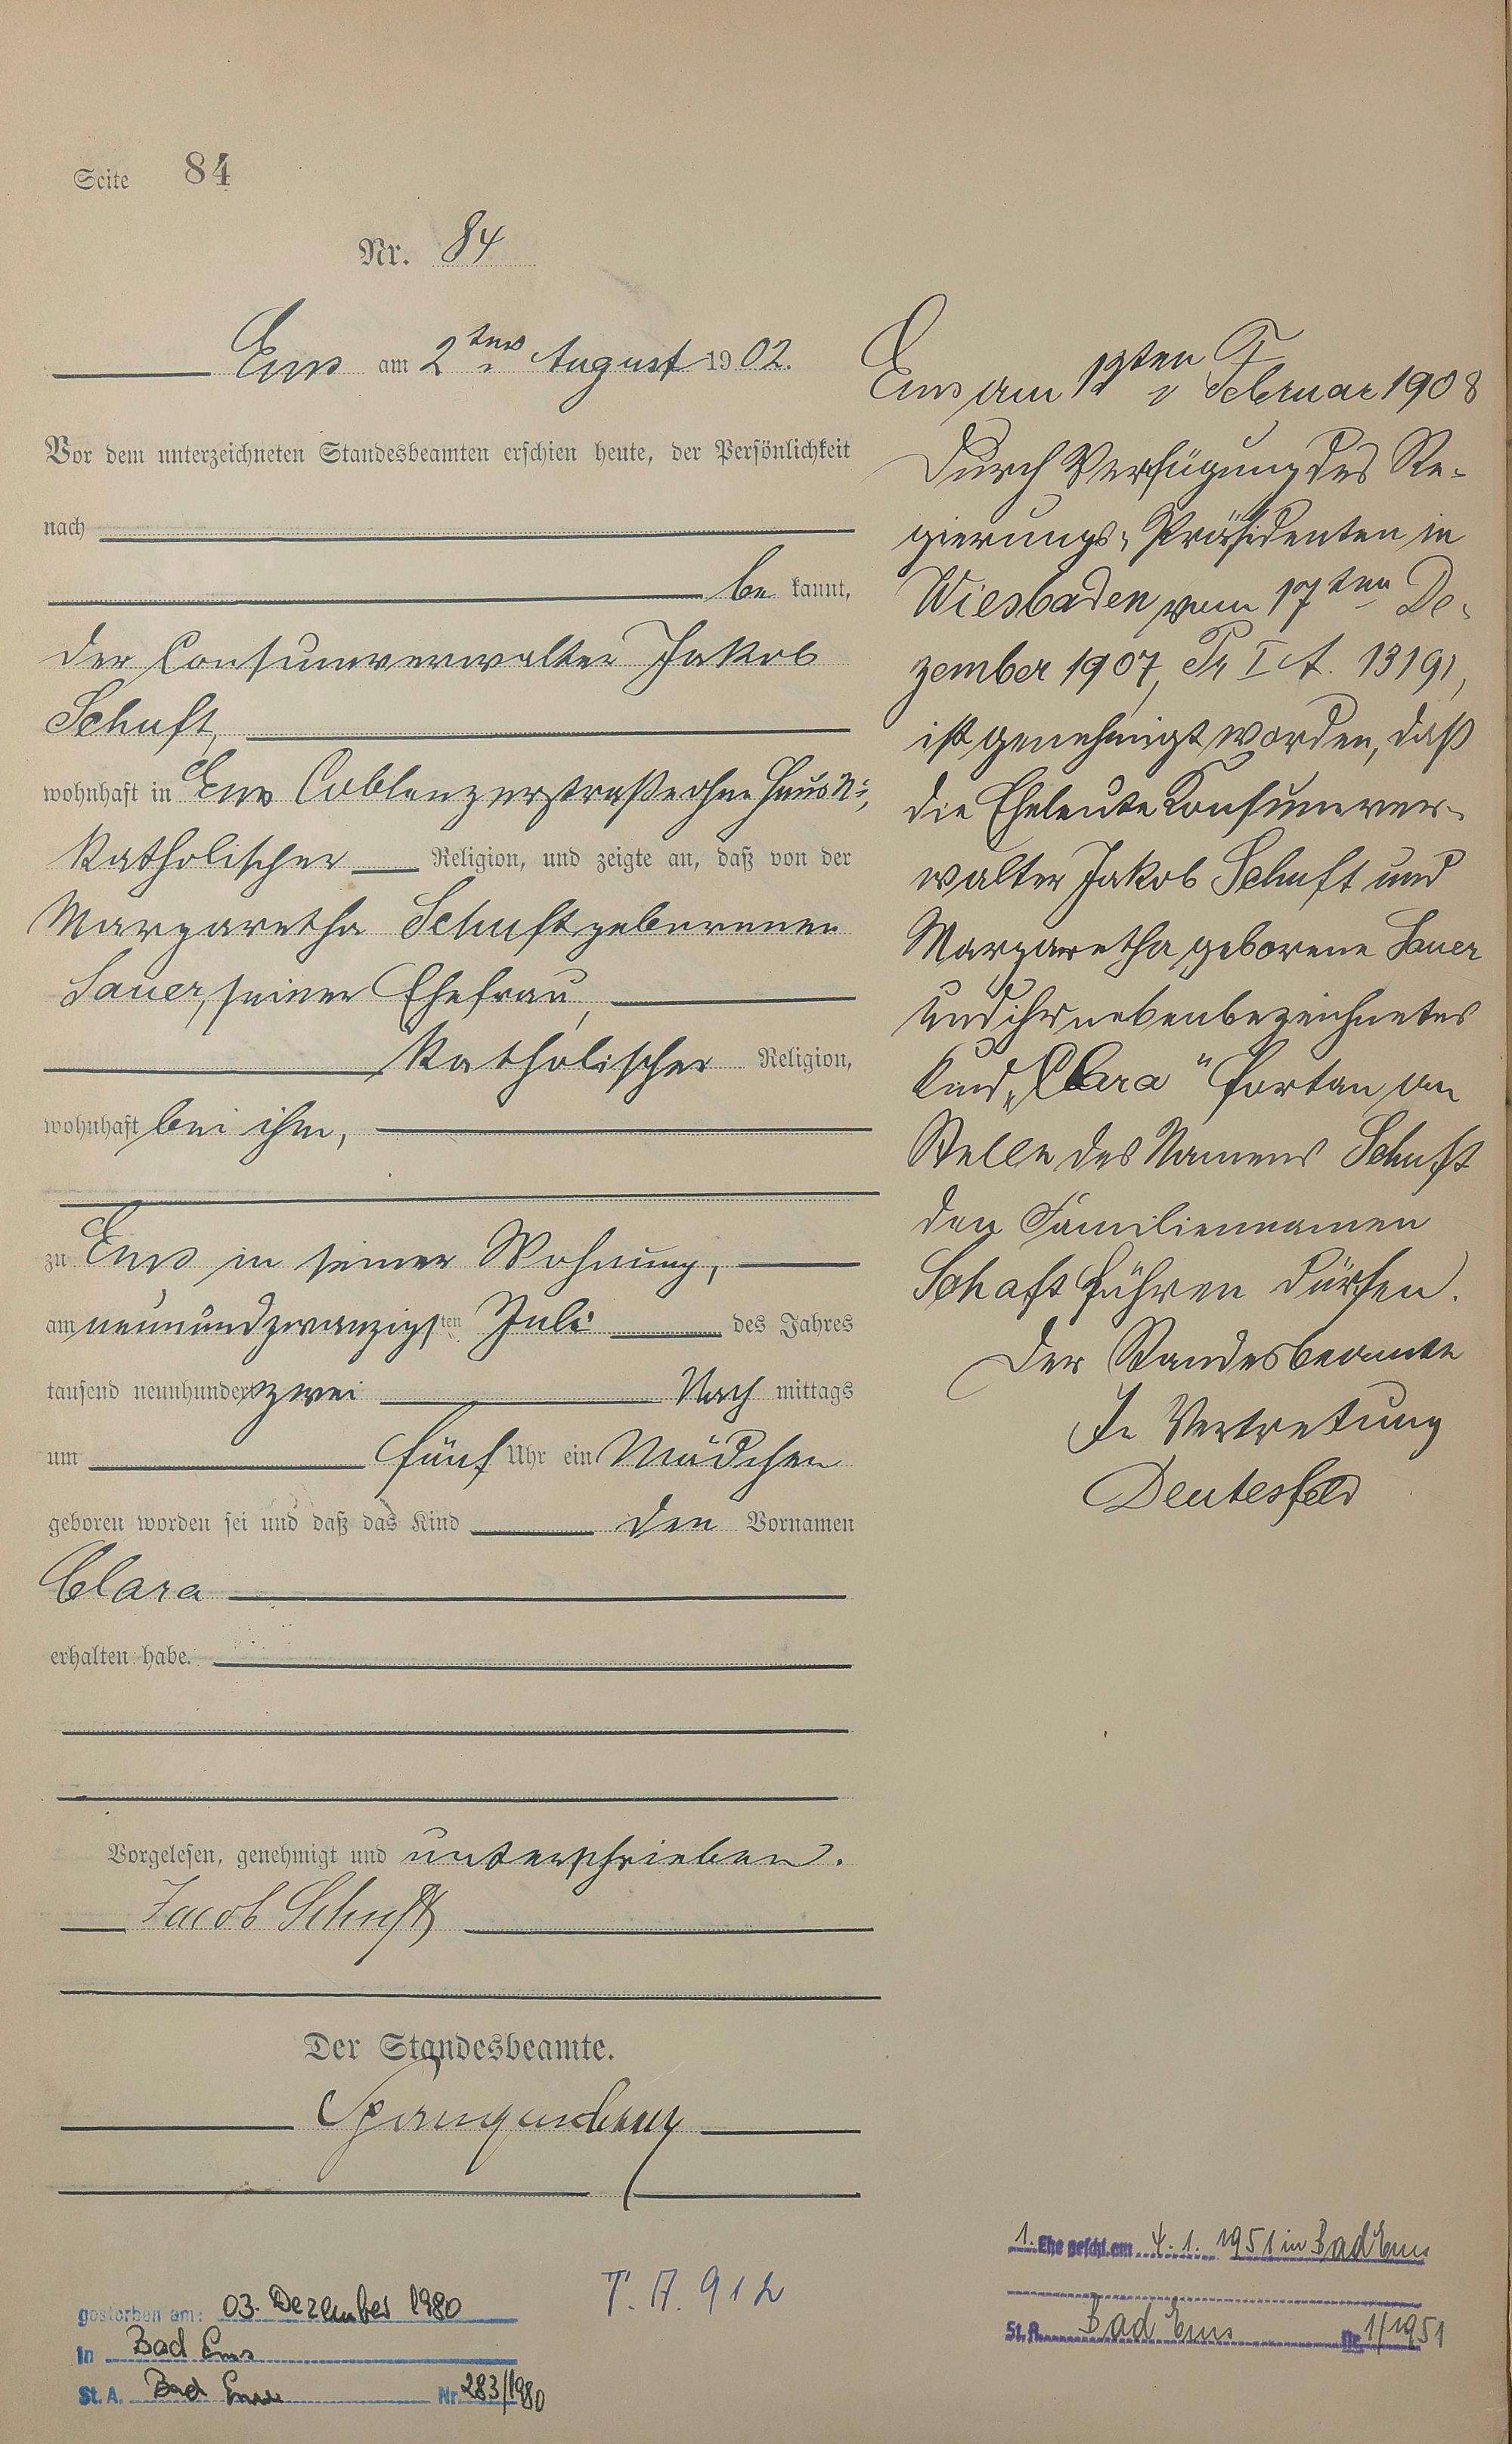 Seite 84
Nr. 84
Ems am 2ten August 1902.
Vor dem unterzeichneten Standesbeamten erschien heute, der Persönlichkeit
nach
be kannt,
der Consumverwalter Jakob
Schuft,
wohnhaft in Ems Coblenzerstraße ohne Haus No,
katholischer Religion, und zeigte an, daß von der
Margaretha Schuft geborenen
Sauer, seiner Ehefrau,
katholischer Religion,
wohnhaft bei ihm,
zu Ems in seiner Wohnung,
am neunundzwanzigsten Juli des Jahres
tausend neunhundert zwei Nach mittags
um fünf Uhr ein Mädchen
geboren worden sei und daß das Kind den Vornamen
Clara
erhalten habe.
Vorgelesen, genehmigt und unterschrieben.
Jacob Schuft
Der Standesbeamte.
Spangenberg
Ems am 12ten Februar 1908
Durch Verfügung des Re-
gierungs-Präsidenten in
Wiesbaden vom 17ten De-
zember 1907, Pr I A. 13191,
ist genehmigt worden, daß
die Eheleute Konsumver-
walter Jakob Schuft und
Margaretha geborene Sauer
und ihr nebenbezeichnetes
Kind „Clara" fortan an
Stelle des Namens Schuft
den Familiennamen
Schaft führen dürfen.
Der Standesbeamte
In Vertretung
Deutesfeld
gestorben am: 03. Dezember 1980
in Bad Ems
St. A. Bad Ems Nr. 283/1980
T. A. 912
1. Ehe geschl. am 4. 1. 1951 in Bad Ems
St. A. Bad Ems Nr. 1/1951